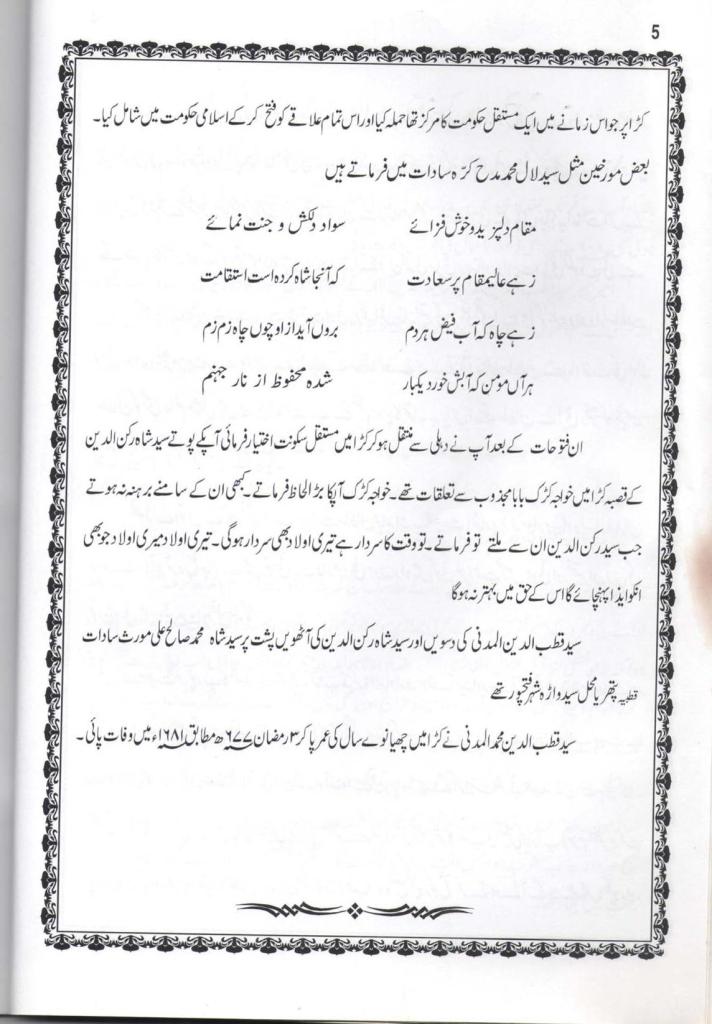 5
کڑا پر جو اس زمانے میں ایک مستقل حکومت کا مرکز تھا حملہ کیا اور اس تمام علاقے کو فتح کر کے اسلامی حکومت میں شامل کیا۔
بعض مورخین مثل سید لال محمد مدح کڑہ سادات میں فرماتے ہیں
مقام دلپزید و خوش فزائے سواد دلکش و جنت نمائے
زہے عالیمقام پر سعادت کہ آنجا شاہ کردہ است استقامت
زہے چاہ کہ آب فیض ہر دم بروں آید از او چوں چاہ زم زم
ہر آں مؤمن کہ آبش خورد یکبار شدہ محفوظ از نار جہنم
ان فتوحات کے بعد آپ نے دہلی سے منتقل ہو کر کڑا میں مستقل سکونت اختیار فرمائی آپکے پوتے سید شاہ رکن الدین
کے قصبہ کڑا میں خواجہ کڑک بابا مجذوب سے تعلقات تھے۔ خواجہ کڑک آپکا بڑا لحاظ فرماتے۔ کبھی ان کے سامنے برہنہ نہ ہوتے
جب سید رکن الدین ان سے ملتے تو فرماتے۔ تو وقت کا سردار ہے تیری اولاد بھی سردار ہوگی۔ تیری اولاد میری اولاد جو بھی
انکو ایذا پہنچائے گا اس کے حق میں بہتر نہ ہوگا
سید قطب الدین المدنی کی دسویں اور سید شاہ رکن الدین کی آٹھویں پشت پر سید شاہ محمد صالح علی مورث سادات
قطبیہ پتھریا محل سید واڑہ شہر فتحپور تھے
سید قطب الدین محمد المدنی نے کڑا میں چھیانوے سال کی عمر پا کر ۳ رمضان ۶۷۷ھ مطابق ۱۶۸۱ء میں وفات پائی۔